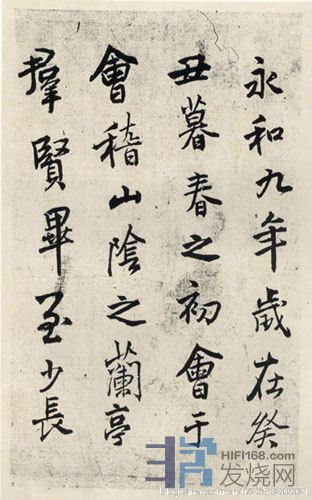 永和九年歲在癸
丑暮春之初會于
會稽山陰之蘭亭
羣賢畢至少長
HIFI168.com
发烧网